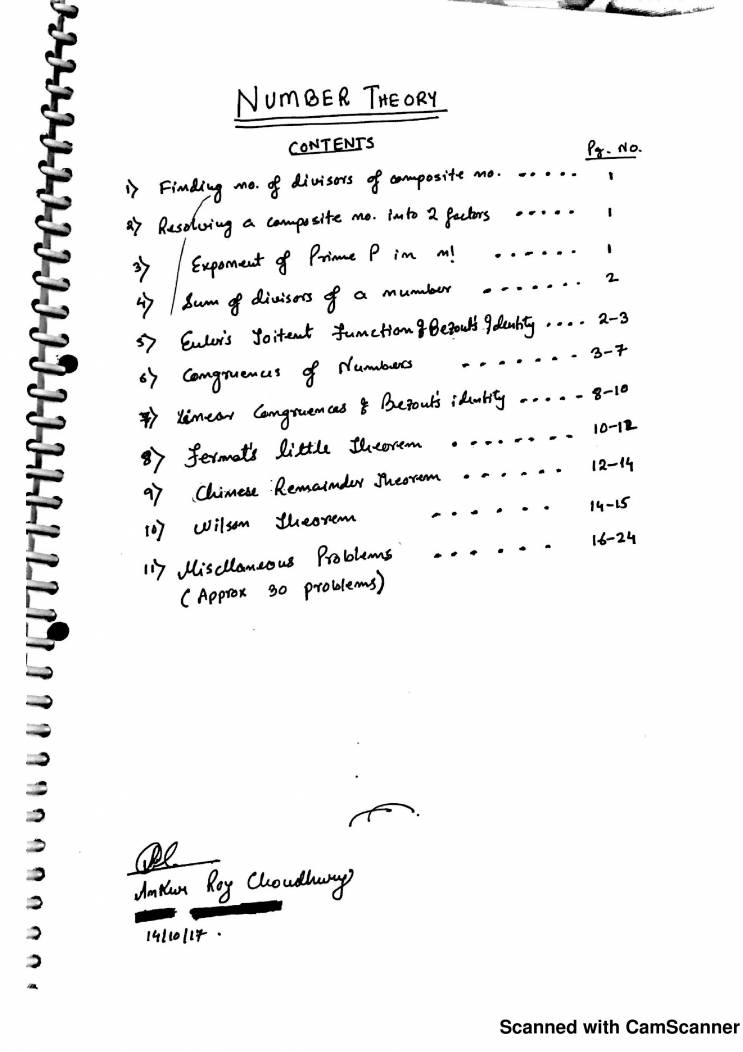 NUMBER THEORY
CONTENTS Pg. No.
1) Finding no. of divisors of composite no. ----- 1
2) Resolving a composite no. into 2 factors ----- 1
3) Exponent of Prime P in n! ------ 1
4) Sum of divisors of a number ------- 2
5) Euler's Toitent Function & Bezout's Identity .... 2-3
6) Congruences of Numbers ------- 3-7
7) Linear Congruences & Bezout's identity ----- 8-10
8) Fermat's little Theorem ------- 10-12
9) Chinese Remainder Theorem ------ 12-14
10) Wilson Theorem ------ 14-15
11) Miscllaneous Problems ------ 16-24
(Approx 30 problems)
Ankur Roy Choudhury
14/10/17.
Scanned with CamScanner